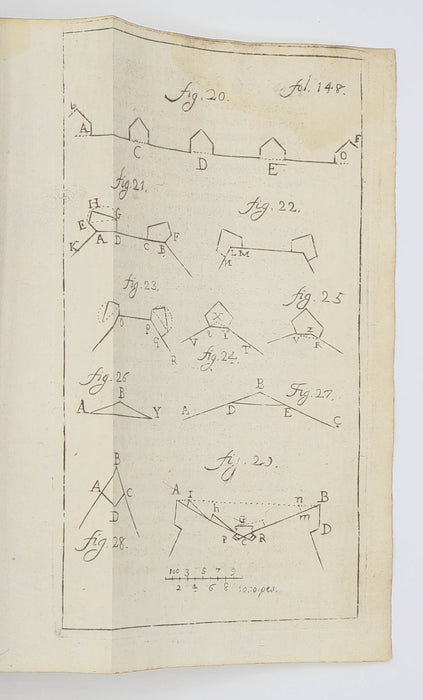 fig. 20. fol. 148.
A C D E O F
fig 21.
H G
E
K A D C B F
fig. 22.
L M
n
fig. 23.
o p
q
R
X
V Y T
fig. 24.
fig. 25
z
V R
fig. 26
B
A Y
Fig. 27.
B
A D E C
B
A C
D
fig. 28.
fig. 29.
A I h n B
G m
P C R D
100 3 5 7 9
2 4 6 8 pes.